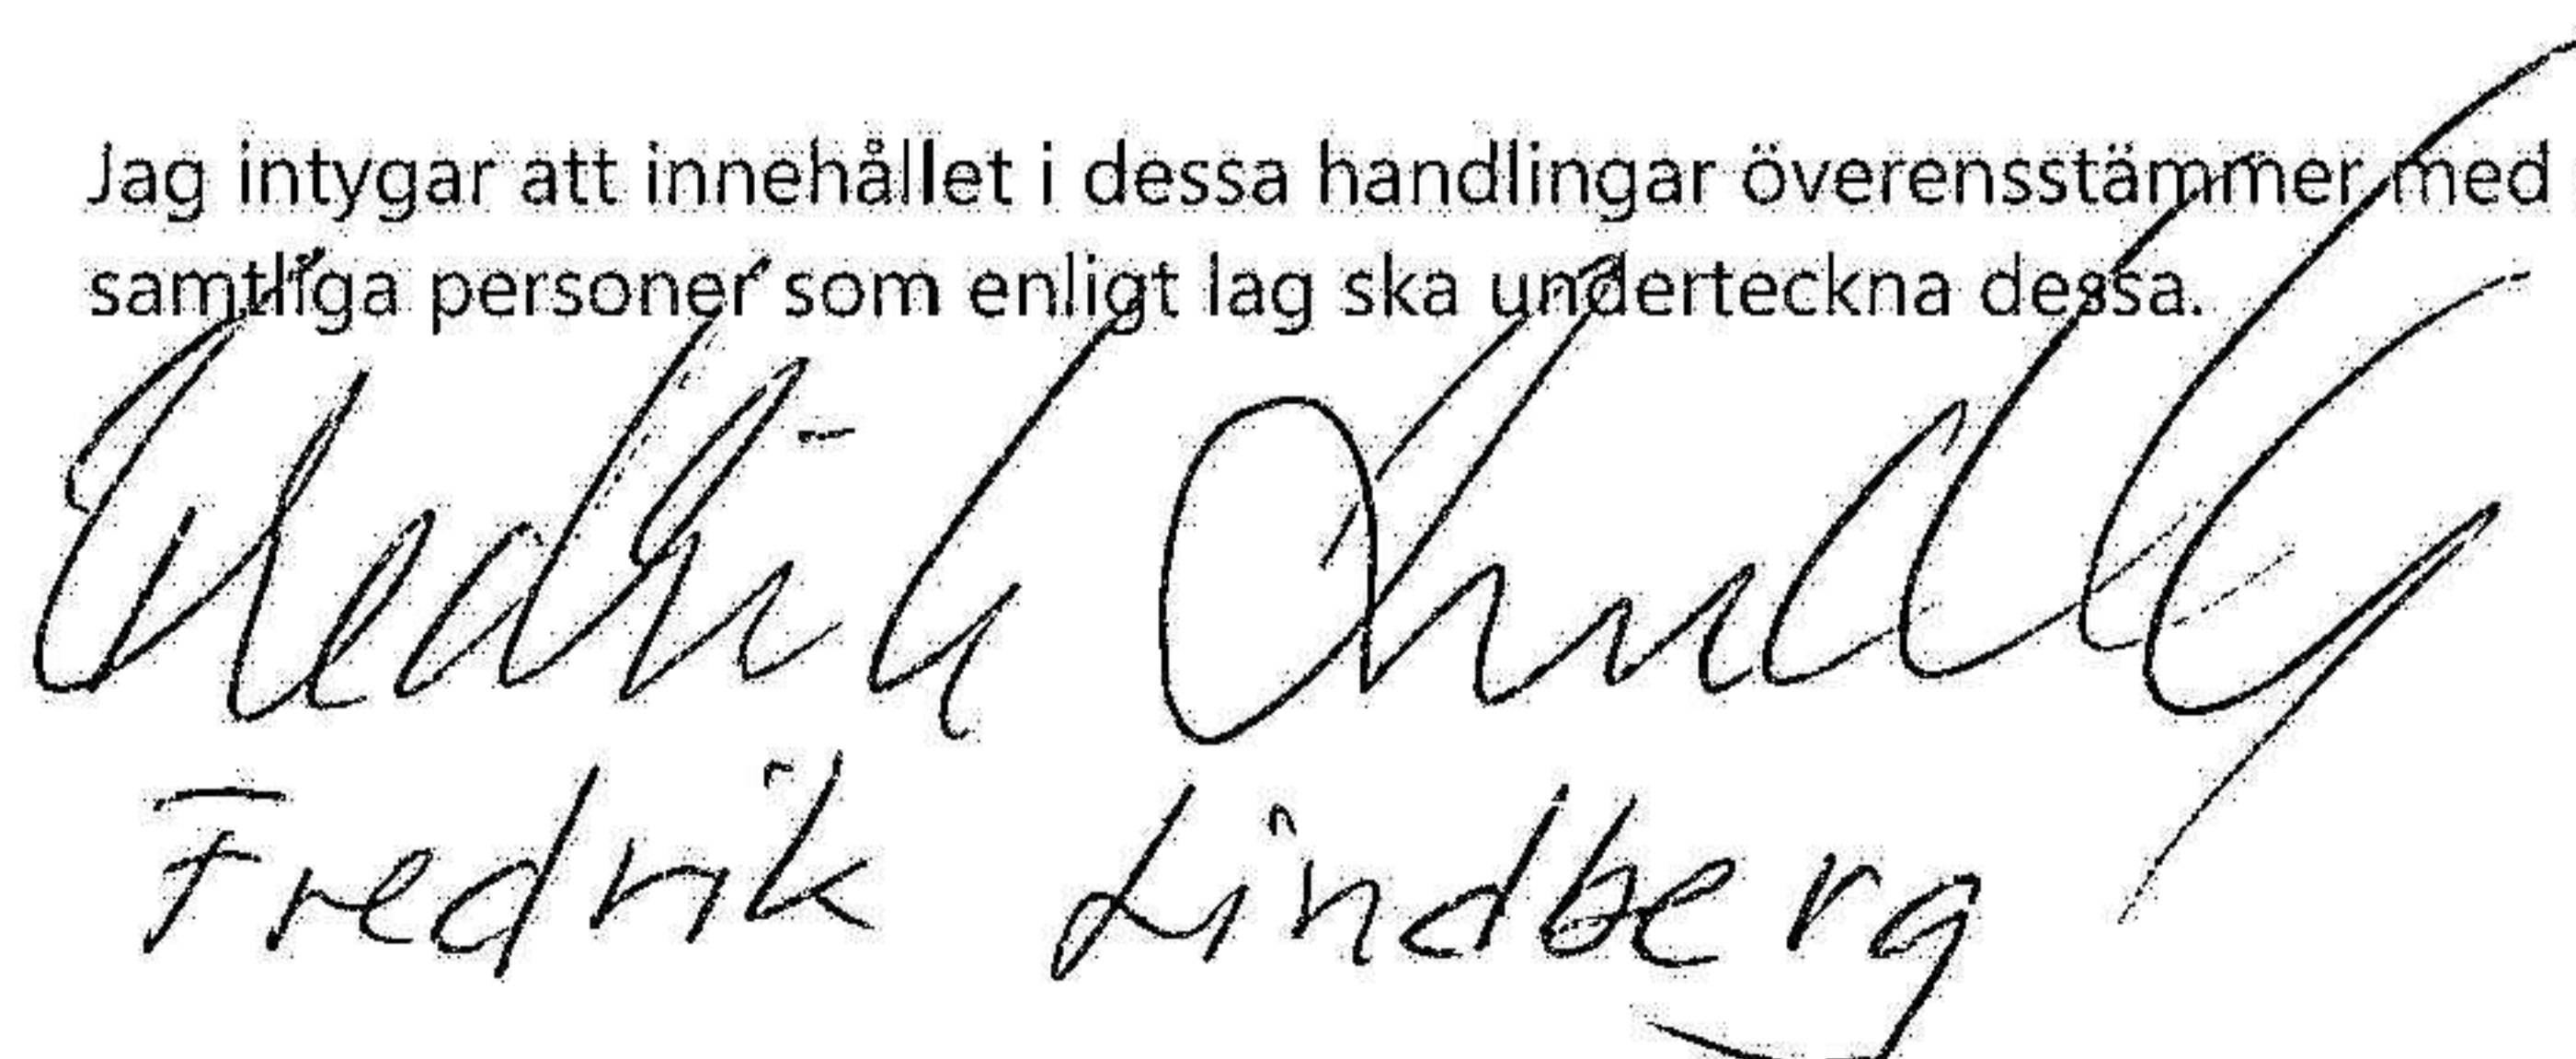 Jag intygar att innehållet i dessa handlingar överensstämmer med
samtliga personer som enligt lag ska underteckna dessa.
Fredrik Lindberg
Fredrik Lindberg